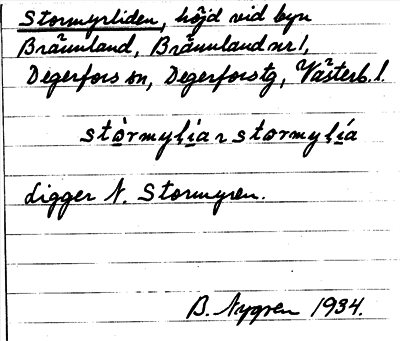 Stormyrliden, höjd vid byn
Brännland, Brännland nr 1,
Degerfors sn, Degerfors tg, Västerb. l.
stòrmylia ~ stormylía
Ligger N. Stormyren.
B. Nygren 1934.